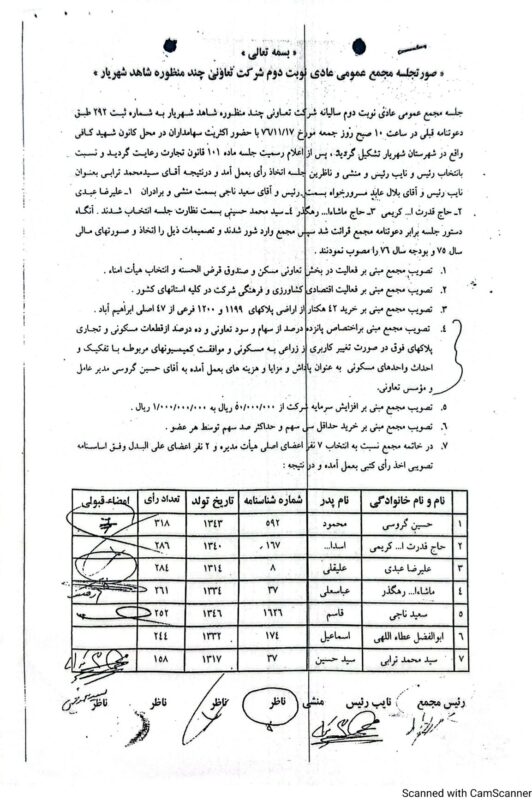 « بسمه تعالی »
« صورتجلسه مجمع عمومی عادی نوبت دوم شرکت تعاونی چند منظوره شاهد شهریار »
جلسه مجمع عمومی عادی نوبت دوم سالیانه شرکت تعاونی چند منظوره شاهد شهریار به شماره ثبت ۲۹۲ طبق
دعوتنامه قبلی در ساعت ۱۰ صبح روز جمعه مورخ ۷۶/۱۱/۱۷ با حضور اکثریت سهامداران در محل کانون شهید کافی
واقع در شهرستان شهریار تشکیل گردید ، پس از اعلام رسمیت جلسه ماده ۱۰۱ قانون تجارت رعایت گردید و نسبت
بانتخاب رئیس و نایب رئیس و منشی و ناظرین جلسه اتخاذ رأی بعمل آمد و درنتیجه آقای سیدمحمد ترابی بعنوان
نایب رئیس و آقای بلال عابد سرورخواه بسمت رئیس و آقای سعید ناجی بسمت منشی و برادران ۱ـ علیرضا عبدی
۲ـ حاج قدرت ا... کریمی ۳ـ حاج ماشاءا... رهگذر ۴ـ سید محمد حسینی بسمت نظارت جلسه انتخاب شدند . آنگاه
دستور جلسه برابر دعوتنامه مجمع قرائت شد سپس مجمع وارد شور شدند و تصمیمات ذیل را اتخاذ و صورتهای مالی
سال ۷۵ و بودجه سال ۷۶ را مصوب نمودند .
۱. تصویب مجمع مبنی بر فعالیت در بخش تعاونی مسکن و صندوق قرض الحسنه و انتخاب هیأت امناء .
۲. تصویب مجمع مبنی بر فعالیت اقتصادی کشاورزی و فرهنگی شرکت در کلیه استانهای کشور .
۳. تصویب مجمع مبنی بر خرید ۴۲ هکتار از اراضی پلاکهای ۱۱۹۹ و ۱۲۰۰ فرعی از ۴۷ اصلی ابراهیم آباد .
۴. تصویب مجمع مبنی براختصاص پانزده درصد از سهام و سود تعاونی و ده درصد ازقطعات مسکونی و تجاری
پلاکهای فوق در صورت تغییر کاربری از زراعی به مسکونی و موافقت کمیسیونهای مربوطه با تفکیک و
احداث واحدهای مسکونی به عنوان پاداش و مزایا و هزینه های بعمل آمده به آقای حسین گروسی مدیر عامل
و مؤسس تعاونی.
۵. تصویب مجمع مبنی بر افزایش سرمایه شرکت از ۵۰/۰۰۰/۰۰۰ ریال به ۱/۰۰۰/۰۰۰/۰۰۰ ریال .
۶. تصویب مجمع مبنی بر خرید حداقل سی سهم و حداکثر صد سهم توسط هر عضو .
۷. در خاتمه مجمع نسبت به انتخاب ۷ نفر اعضای اصلی هیأت مدیره و ۲ نفر اعضای علی البدل وفق اساسنامه
تصویبی اخذ رأی کتبی بعمل آمده و در نتیجه :
نام و نام خانوادگی نام پدر شماره شناسنامه تاریخ تولد تعداد رأی امضاء قبولی
۱ حسین گروسی محمود ۵۹۲ ۱۳۴۳ ۳۱۸
۲ حاج قدرت ا... کریمی اسدا... ۱۶۷ ۱۳۴۰ ۲۸۶
۳ علیرضا عبدی علیقلی ۸ ۱۳۱۴ ۲۸۴
۴ ماشاءا... رهگذر عباسعلی ۳۷ ۱۳۳۴ ۲۶۱
۵ سعید ناجی قاسم ۱۶۲۶ ۱۳۴۶ ۲۵۲
۶ ابوالفضل عطاء اللهی اسماعیل ۱۷۴ ۱۳۳۲ ۲۴۴
۷ سید محمد ترابی سید حسین ۳۷ ۱۳۱۷ ۱۵۸
رئیس مجمع نایب رئیس منشی ناظر ناظر ناظر ناظر
Scanned with CamScanner